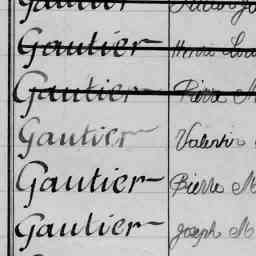 Gautier
Gautier Henri
Gautier Pierre M
Gautier Valentin
Gautier Pierre M
Gautier Joseph M